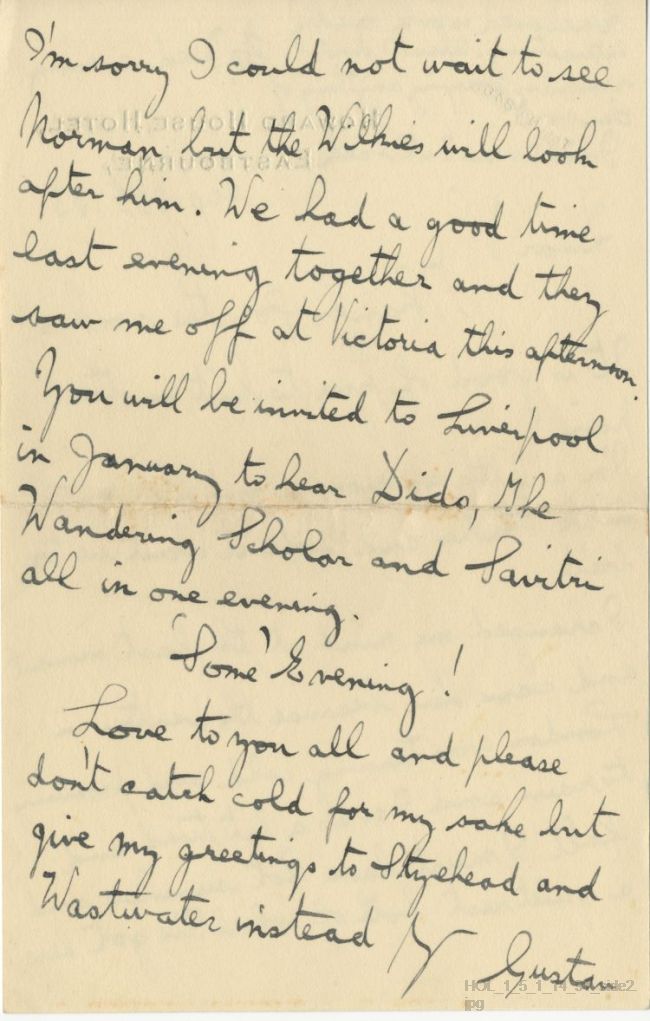 I'm sorry I could not wait to see
Norman but the Wilkies will look
after him. We had a good time
last evening together and they
saw me off at Victoria this afternoon.
You will be invited to Liverpool
in January to hear Dido, The
Wandering Scholar and Savitri
all in one evening.
'Some' Evening!
Love to you all and please
don't catch cold for my sake but
give my greetings to Styehead and
Wastwater instead
Gustav
HOWARD HOUSE HOTEL,
EASTBOURNE,